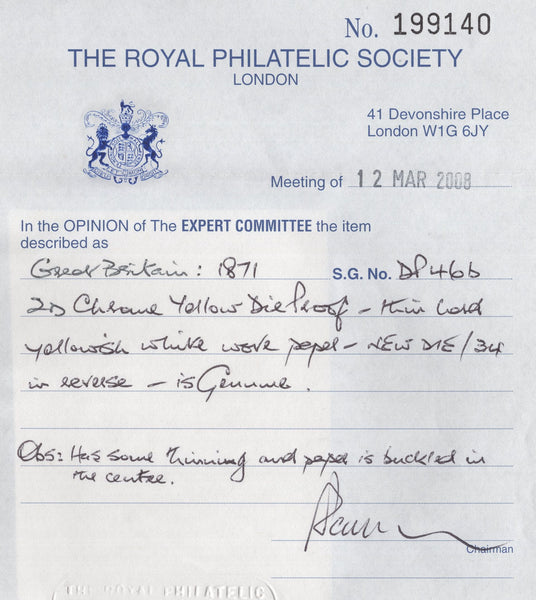 No. 199140
THE ROYAL PHILATELIC SOCIETY
LONDON
41 Devonshire Place
London W1G 6JY
Meeting of 12 MAR 2008
In the OPINION of The EXPERT COMMITTEE the item
described as
Great Britain: 1871 S.G. No. DP46b
2D Chrome Yellow Die Proof - thin hard
yellowish white wove paper - NEW DIE/34
in reverse - is Genuine.
Obs: Has some thinning and paper is buckled in
the centre.
Chairman
THE ROYAL PHILATELIC